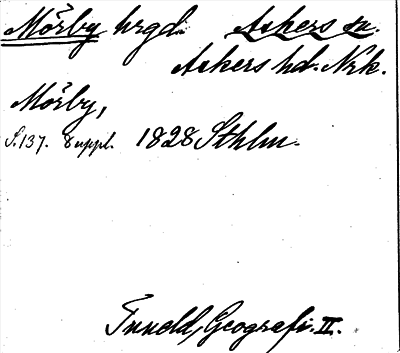 Mörby hrgd. Askers sn.
Askers hd. Nrk.
Mörby,
S.137. 8 uppl. 1828 Sthlm.
Tuneld, Geografi. II.